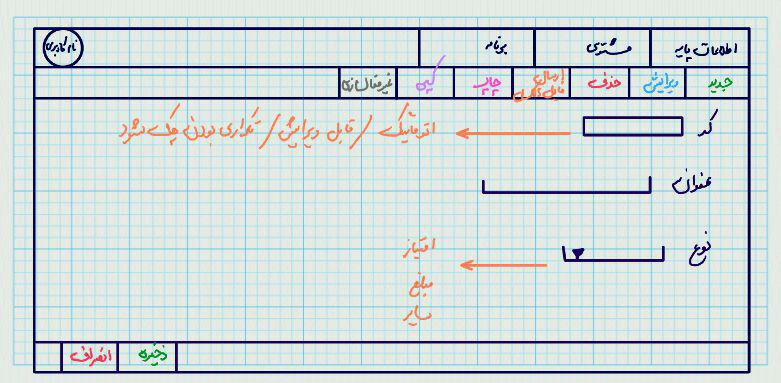 اطلاعات پایه مشتری برنامه نام کاربری
جدید ویرایش حذف ارسال فایل چاپ کپی غیرفعالسازی
کد اتوماتیک / قابل ویرایش / تکراری بودن چک شود
عنوان
نوع امتیاز
مبلغ
سایر
ذخیره انصراف